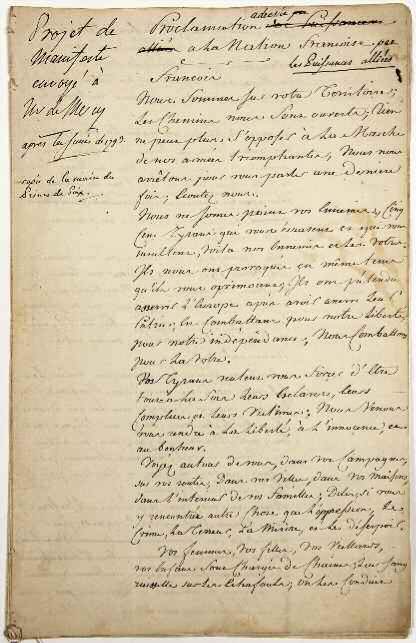 Projet de
Manifeste
envoyé à
Mr de Mercy
après la fin de 1793
copié de la main du
Prince de
Proclamation adressée par
à la Nation Françoise par
les Puissances alliées
François
Nous sommes sur votre Territoire;
Les Chemins nous sont ouverts; Rien
ne peut plus s'opposer à la Marche
de nos armées triomphantes, Nous nous
arrêtons pour vous parler une derniere
fois, Ecoutez nous.
Nous ne sommes point vos Ennemis, Cinq
Cent Tyrans qui vous écrasent et qui vous
insultent, voila nos Ennemis et les votres.
Ils nous ont provoqués en même tems
qu'ils vous opprimoient; Ils ont prétendu
asservir l'Europe après avoir asservi leur
Patrie; En Combattant pour notre Liberté,
pour notre indépendance; Nous Combattons
pour la Votre.
Vos Tyrans veulent vous forcer d'être
tour à la fois leurs Esclaves, leurs
Complices et leurs Victimes; Nous Venons
vous rendre à la Liberté, à l'innocence, et
au bonheur.
Voyez autour de vous, dans vos Campagnes,
sur vos routes, Dans vos Villes, dans vos Maisons,
dans l'interieur de vos familles; Dites, si vous
y rencontrez autre chose que l'oppression, le
Crime, la Terreur, La Misère, et le désespoir.
Vos femmes, Vos filles, Vos Vieillards,
vos Enfans sont Chargés de Chaines; Leur sang
ruisselle sur les Echafauts; on les Conduit